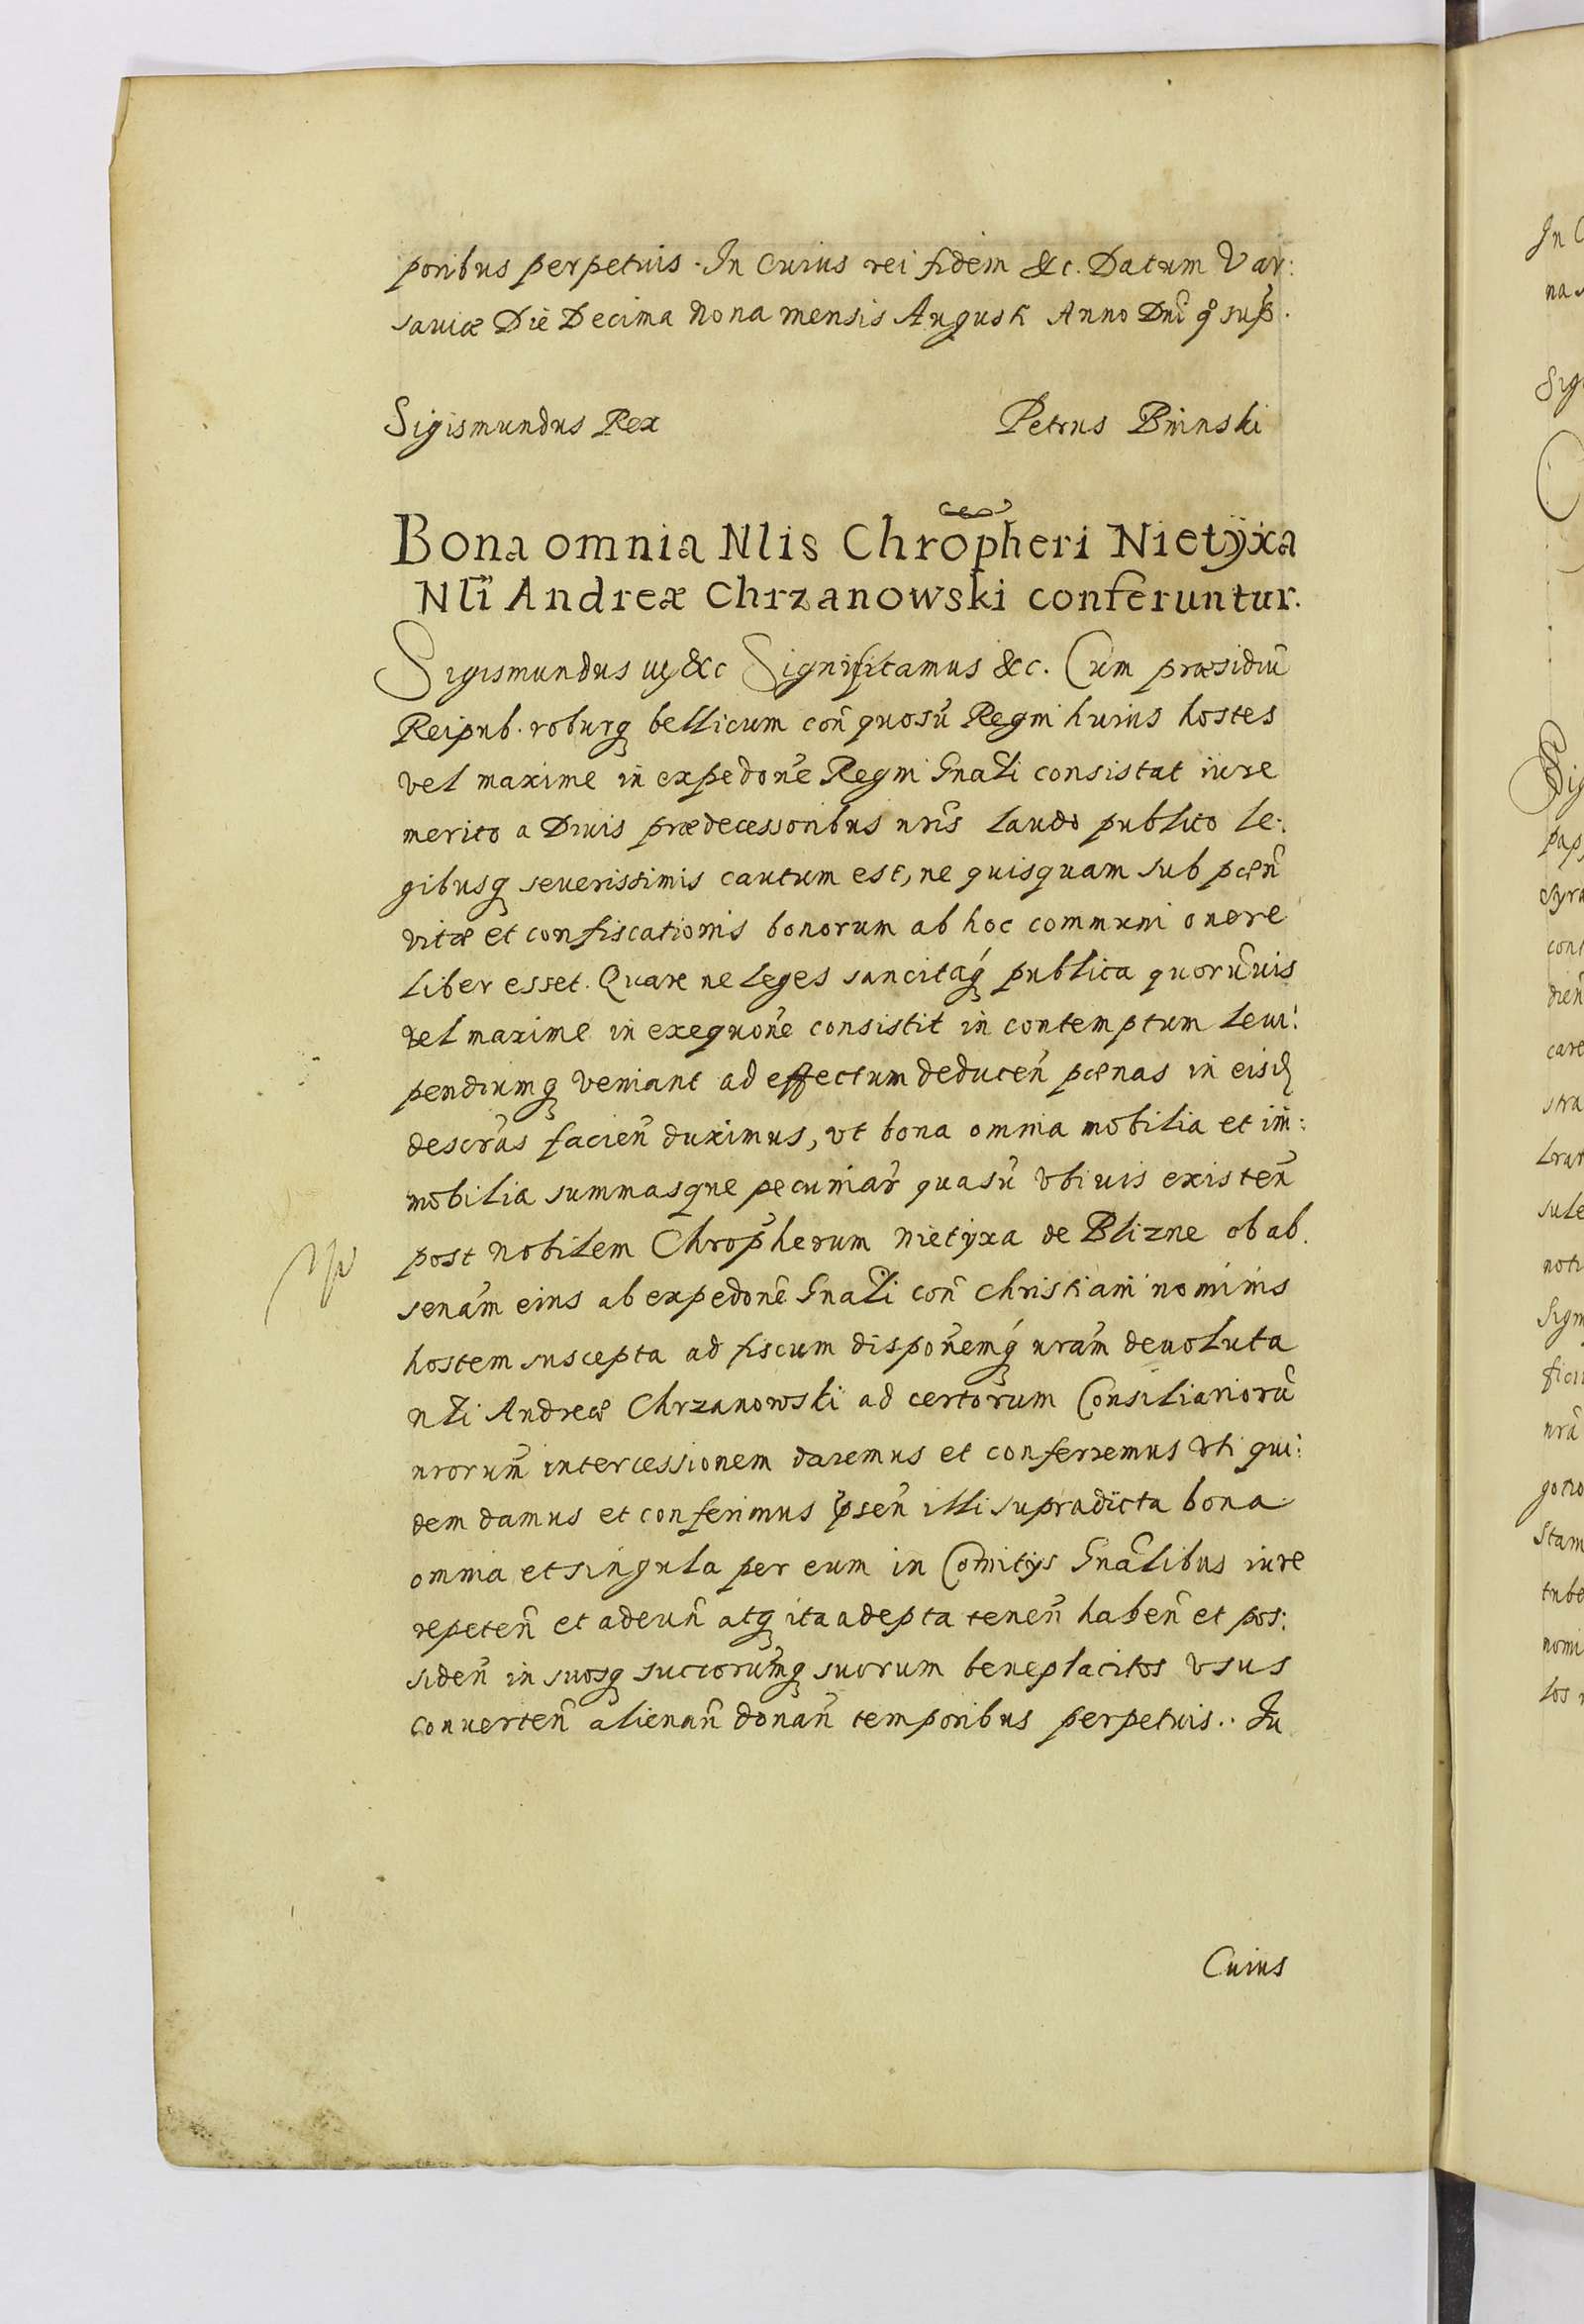 poribus perpetuis. In Cuius rei fidem &c. Datum Var:
sauiæ Die Decima Nona mensis Augusti Anno Dni q̊ sup̃.
Sigismundus Rex Petrus Bninski
Bona omnia Nlis Chrõpheri Nietÿxa
Nlĩ Andreæ Chrzanowski conferuntur.
Sigismundus &c Significamus &c. Cum præsidiũ
Reipub. roburq bellicum coñ quosũ Regni huius hostes
vel maxime in expedoñe Regni Gnãli consistat iure
merito a Diuis prædecessoribus nrĩs laudo publico le:
gibusq seuerissimis cautum est, ne quisquam sub pœñ
vitæ et confiscationis bonorum ab hoc communi onere
liber esset. Quare ne leges sancitaq́ publica quorũuis
vel maxime in exequoñe consistit in contemptum leui:
pendiumq veniant ad effectum deduceñ pœnas in eisd
descrãs facieñ duximus, vt bona omnia mobilia et im̃:
mobilia summasque pecuniar̃ quasũ vbiuis existeñ
post nobilem Chrop̃herum Nietÿxa de Blizne ob ab
senãm eius ab expedoñe Gnãli coñ Christiani nominis
hostem suscepta ad fiscum dispoñemq́ nrãm deuoluta
nli Andreæ Chrzanowski ad certorum Consiliariorũ
nrorum̃ intercessionem daremus et conferremus vti qui:
dem damus et conferimus p̃señ illi supradicta bona
omnia et singula per eum in Comitijs Gnãlibus iure
repeteñ et adeuñ atq ita adepta teneñ habeñ et pos:
sideñ in suosq succorũmq suorum beneplacitos vsus
conuerteñ alienañ donañ temporibus perpetuis.. In
Cuius